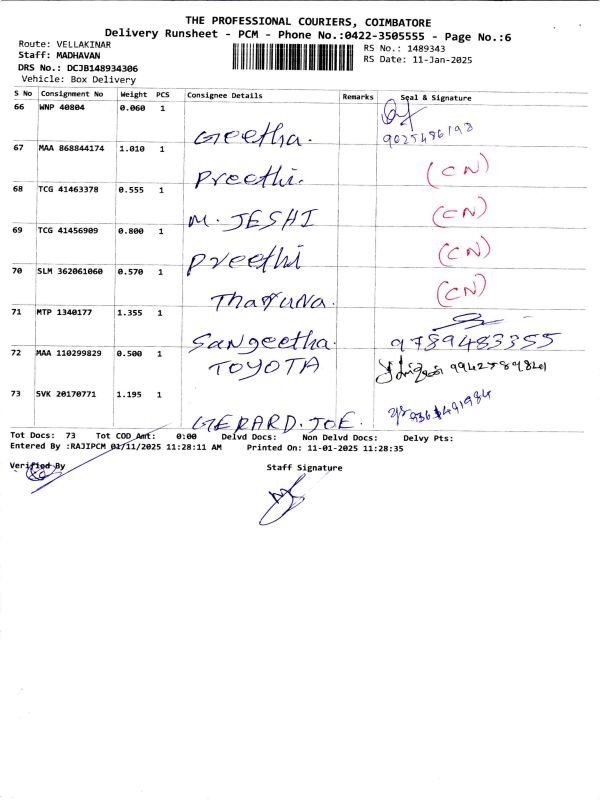 THE PROFESSIONAL COURIERS, COIMBATORE
Delivery Runsheet - PCM - Phone No.:0422-3505555 - Page No.:6
Route: VELLAKINAR RS No.: 1489343
Staff: MADHAVAN RS Date: 11-Jan-2025
DRS No.: DCJB148934306
Vehicle: Box Delivery
S No Consignment No Weight PCS Consignee Details Remarks Seal & Signature
66 WNP 40804 0.060 1 Geetha. 9025486198
67 MAA 868844174 1.010 1 Preethi. (CN)
68 TCG 41463378 0.555 1 M. JESHI (CN)
69 TCG 41456909 0.800 1 Preethi (CN)
70 SLM 362061060 0.570 1 Tharuna. (CN)
71 MTP 1340177 1.355 1 Sangeetha. 9789483355
72 MAA 110299829 0.500 1 TOYOTA
73 SVK 20170771 1.195 1 GERARD. JOE.
Tot Docs: 73 Tot COD Amt: 0:00 Delvd Docs: Non Delvd Docs: Delvy Pts:
Entered By :RAJIPCM 01/11/2025 11:28:11 AM Printed On: 11-01-2025 11:28:35
Verified By Staff Signature